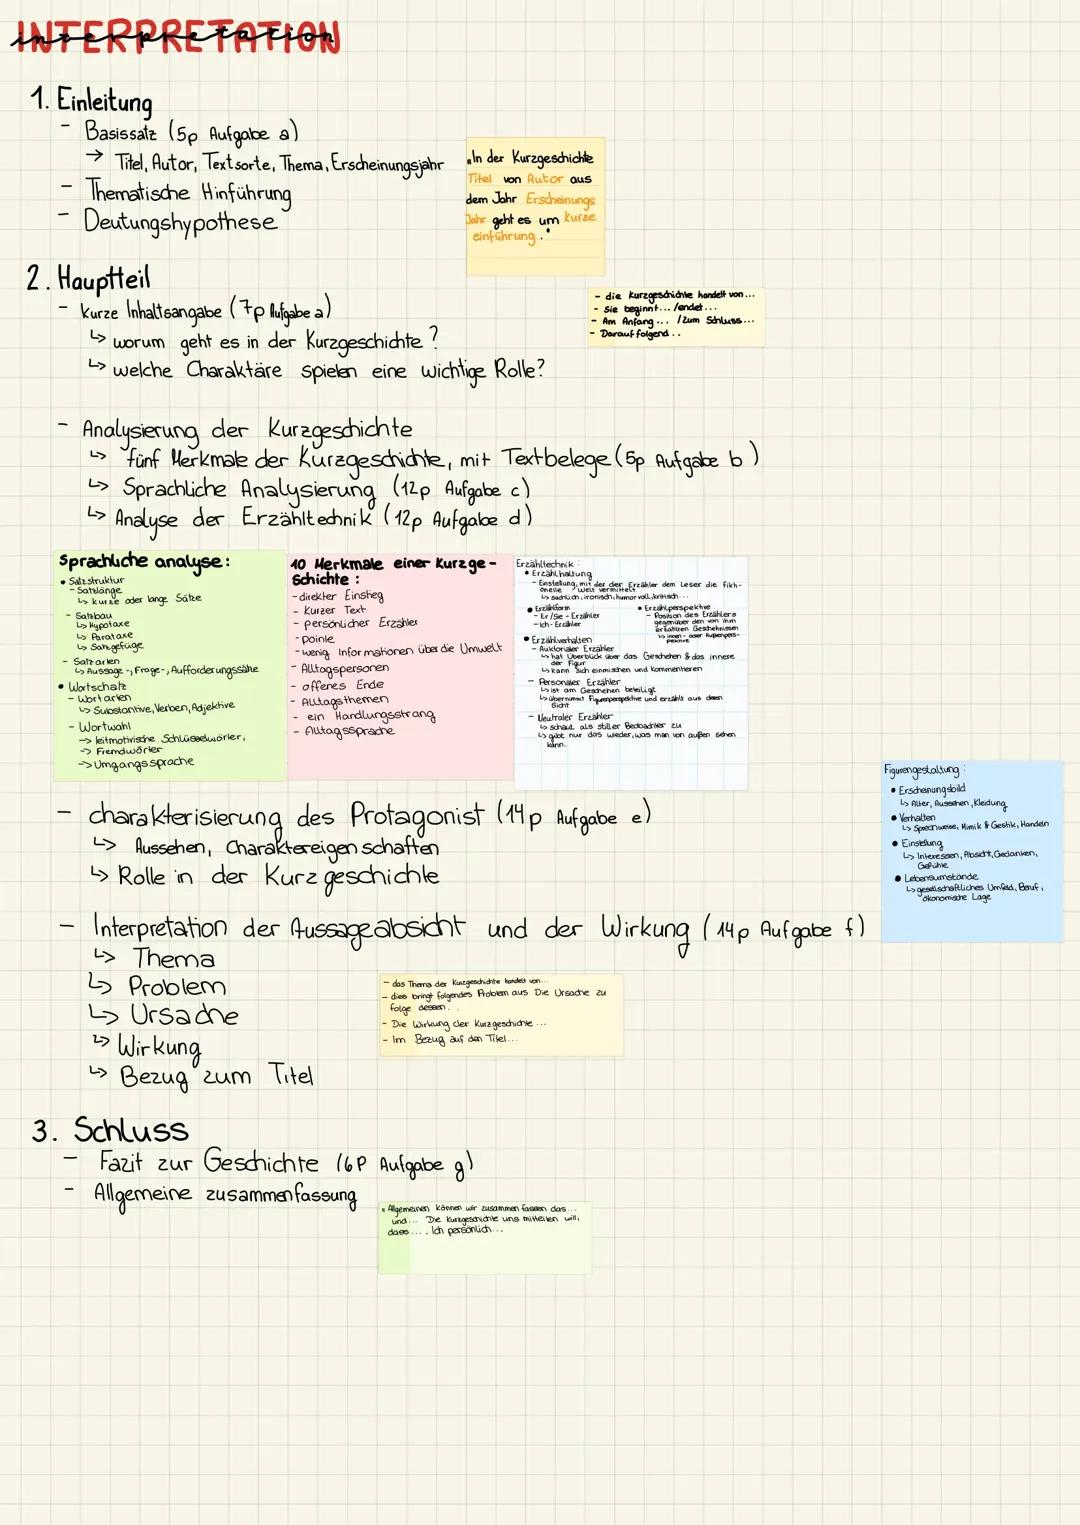 INTERPRETATION
interpretation
1. Einleitung
- Basissatz (5p Aufgabe a)
→ Titel, Autor, Textsorte, Thema, Erscheinungsjahr
- Thematische Hinführung
- Deutungshypothese
„In der Kurzgeschichte
Titel von Autor aus
dem Jahr Erscheinungs
Jahr geht es um kurze
einführung."
2. Hauptteil
- Kurze Inhaltsangabe (7p Aufgabe a)
↳ worum geht es in der Kurzgeschichte?
↳ welche Charaktäre spielen eine wichtige Rolle?
- die Kurzgeschichte handelt von...
- Sie beginnt... /endet...
- Am Anfang... /zum Schluss...
- Darauf folgend..
- Analysierung der Kurzgeschichte
↳ fünf Merkmale der Kurzgeschichte, mit Textbelege (5p Aufgabe b)
↳ Sprachliche Analysierung (12p Aufgabe c)
↳ Analyse der Erzähltechnik (12p Aufgabe d)
Sprachliche analyse:
• Satzstruktur
- Satzlänge
↳ kurze oder lange Sätze
- Satzbau
↳ Hypotaxe
↳ Parataxe
↳ Satzgefüge
- Satzarten
↳ Aussage-, Frage-, Aufforderungssähe
• Wortschatz
- Wortarten
↳ Substantive, Verben, Adjektive
- Wortwahl
→ leitmotivische Schlüsselwörter,
→ Fremdwörter
→ Umgangssprache
10 Merkmale einer Kurzge-
schichte:
- direkter Einstieg
- Kurzer Text
- persönlicher Erzähler
- Pointe
- wenig Informationen über die Umwelt
- Alltagspersonen
- offenes Ende
- Alltagsthemen
- ein Handlungsstrang
- Alltagssprache
Erzähltechnik:
• Erzählhaltung
- Einstellung, mit der der Erzähler dem Leser die fikti-
onelle Welt vermittelt
↳ sachlich, ironisch, humorvoll, kritisch...
• Erzählform
- Er/Sie - Erzähler
- Ich - Erzähler
• Erzählperspektive
- Position des Erzählers
gegenüber den von ihm
erzählten Geschehnissen
↳ innen- oder Außenpers-
pektive
• Erzählverhalten
- Auktorialer Erzähler
↳ hat Überblick über das Geschehen & das innere
der Figur
↳ kann sich einmischen und kommentieren
- Personaler Erzähler
↳ ist am Geschehen beteiligt
↳ übernimmt Figurenperspektive und erzählt aus deren
Sicht
- Neutraler Erzähler
↳ schaut als stiller Beobachter zu
↳ gibt nur das wieder, was man von außen sehen
kann.
- charakterisierung des Protagonist (14p Aufgabe e)
↳ Aussehen, Charaktereigenschaften
↳ Rolle in der Kurzgeschichte
Figurengestaltung:
• Erscheinungsbild
↳ Alter, Aussehen, Kleidung
• Verhalten
↳ Sprechweise, Mimik & Gestik, Handeln
• Einstellung
↳ Interessen, Absicht, Gedanken,
Gefühle
• Lebensumstände
↳ gesellschaftliches Umfeld, Beruf,
ökonomische Lage
- Interpretation der Aussageabsicht und der Wirkung (14p Aufgabe f)
↳ Thema
↳ Problem
↳ Ursache
↳ Wirkung
↳ Bezug zum Titel
- das Thema der Kurzgeschichte handelt von...
- dies bringt folgendes Problem aus Die Ursache zu
folge dessen..
- Die Wirkung der Kurzgeschichte...
- Im Bezug auf den Titel...
3. Schluss
- Fazit zur Geschichte (6P Aufgabe g)
- Allgemeine zusammenfassung
" Allgemeinen können wir zusammen fassen das...
und... Die Kurzgeschichte uns mitteilen will,
dass.... Ich persönlich...